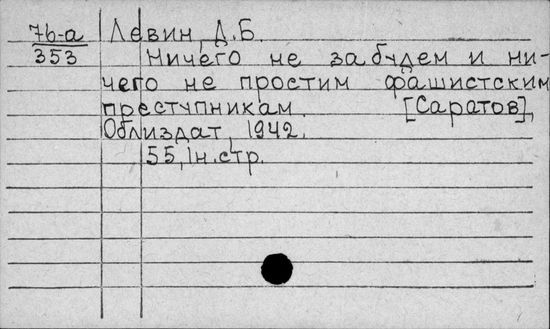 7б-а Левин, Д.Б.
353 Ничего не забудем и ни-
чего не простим фашистским
преступникам. [Саратов],
Облиздат, 1942.
55, 1н.стр.